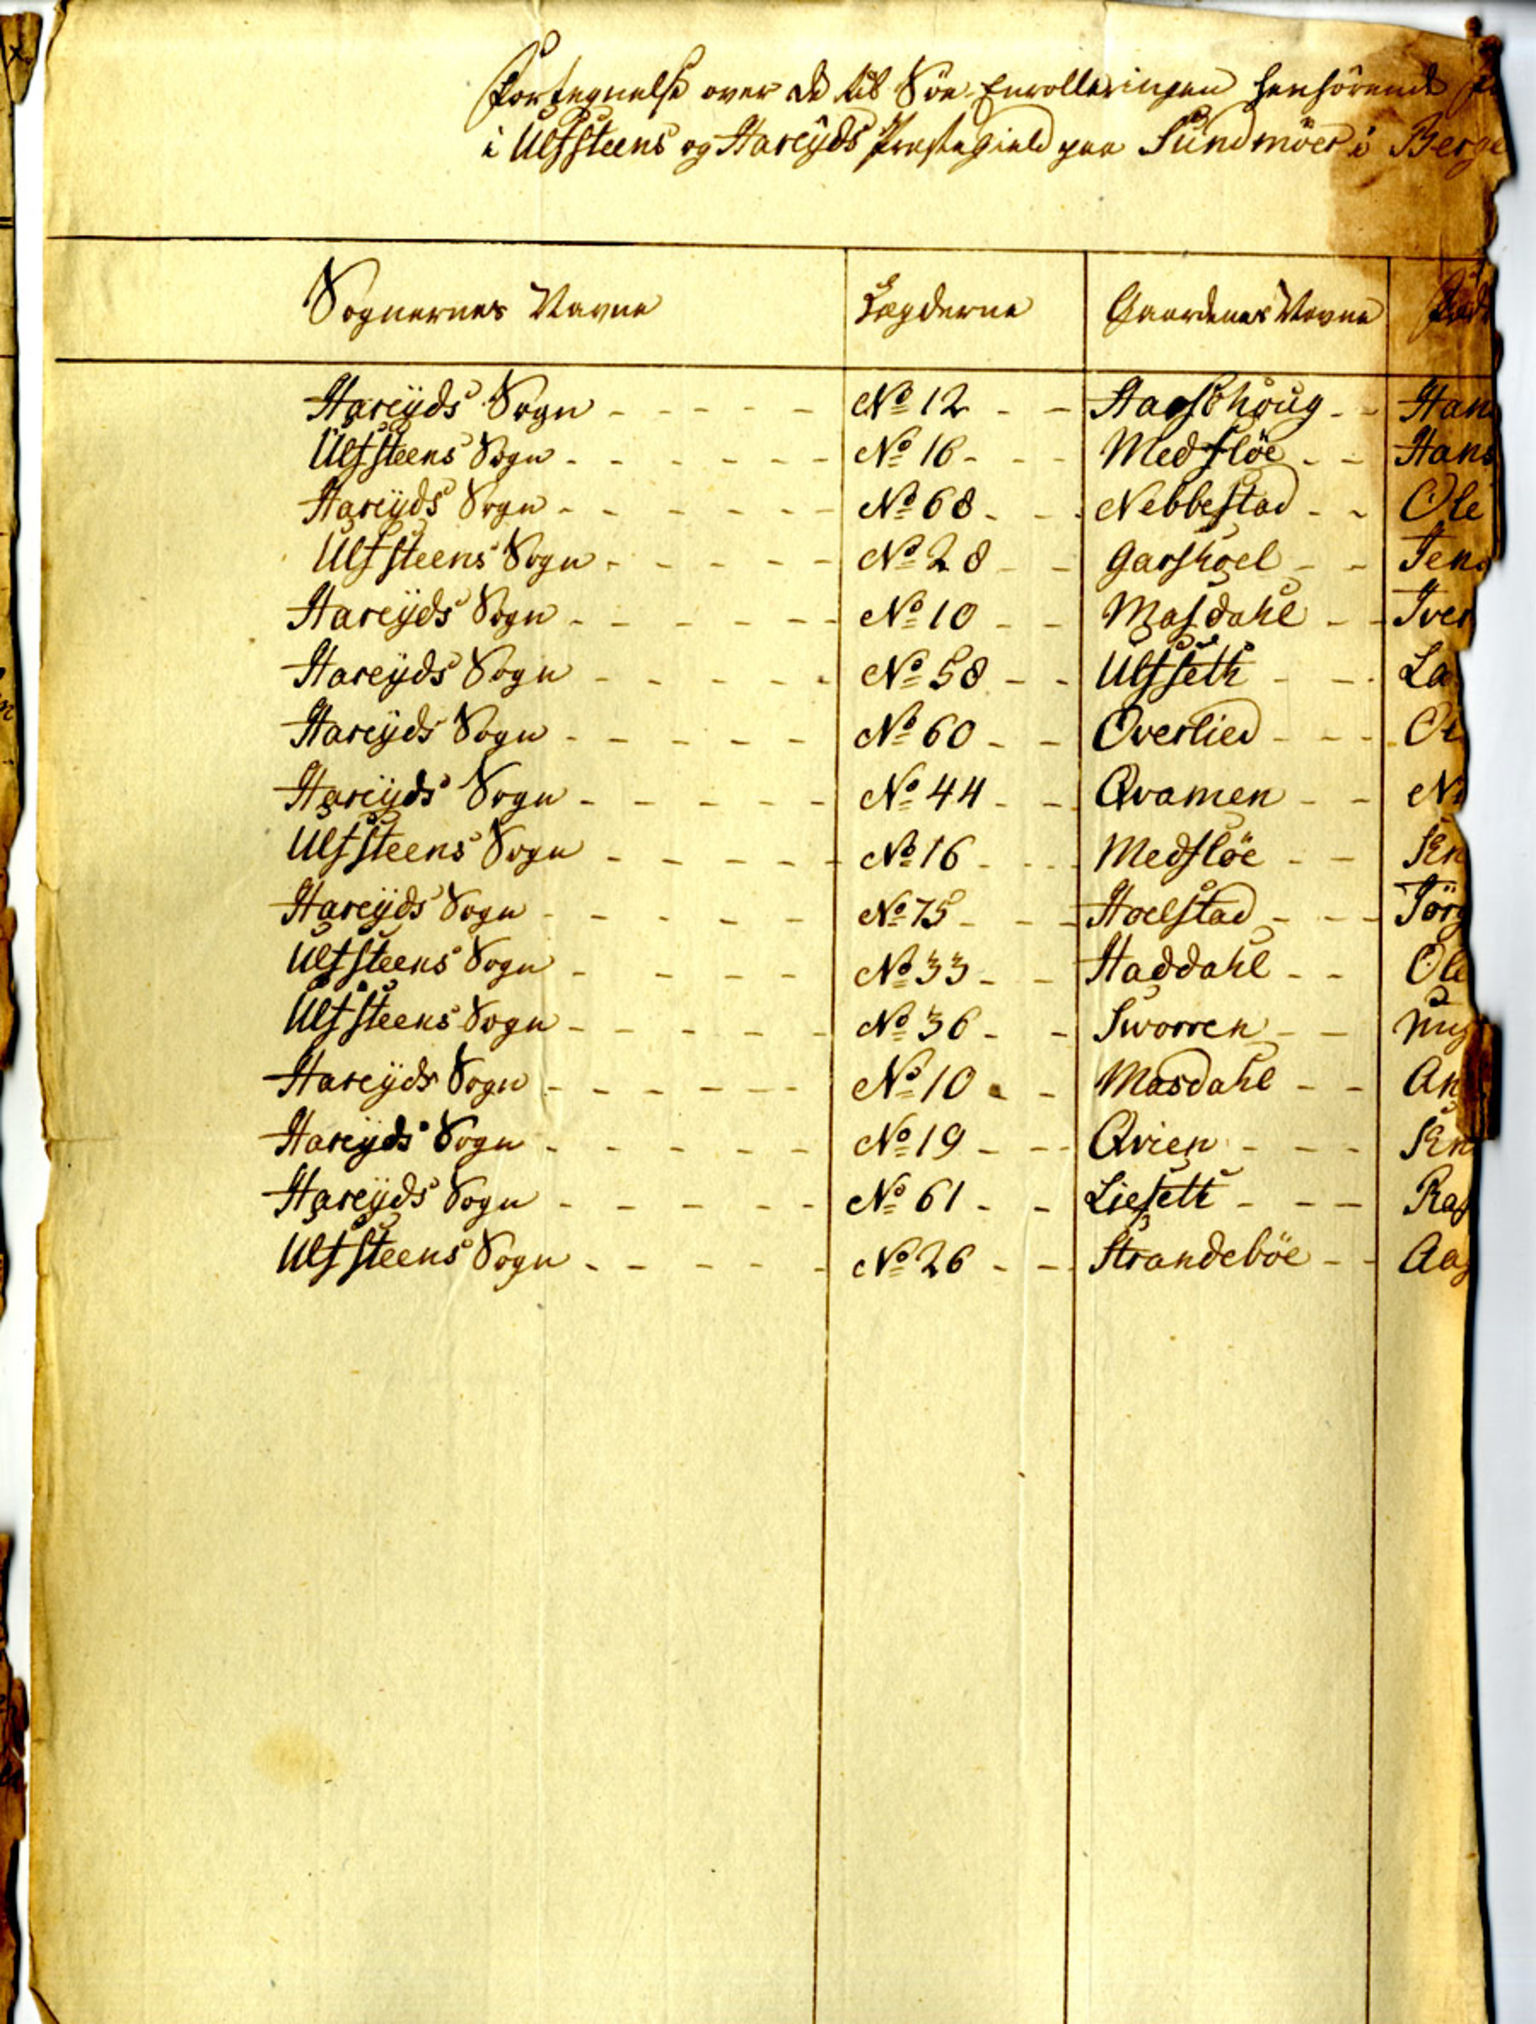 Fortegnelse over de til Söe-Enrolleringen henhörende
i Ulfsteens og Hareÿds Præstegield paa Sündmöer i Berge
Sognernes Navne Lægderne Gaardenes Navne Föd
Hareÿds Sogn No 12 Haaschoug Han
Ulfsteens Sogn No 16 Medflöe Hans
Hareÿds Sogn No 68 Nebbestad Ole
Ulfsteens Sogn No 28 Garshoel Jens
Hareÿds Sogn No 10 Masdahl Iver
Hareÿds Sogn No 58 Ulfseth La
Hareÿds Sogn No 60 Overlied Ol
Hareÿds Sogn No 44 Qvamen Ni
Ulfsteens Sogn No 16 Medflöe Kn
Hareÿds Sogn No 75 Hoelstad Jörg
Ulfsteens Sogn No 33 Haddahl Ole
Ulfsteens Sogn No 36 Sworren
Hareÿds Sogn No 10 Masdahl An
Hareÿds Sogn No 19 Qvien Kn
Hareÿds Sogn No 61 Lieseth Ras
Ulfsteens Sogn No 26 Strandeböe Aag